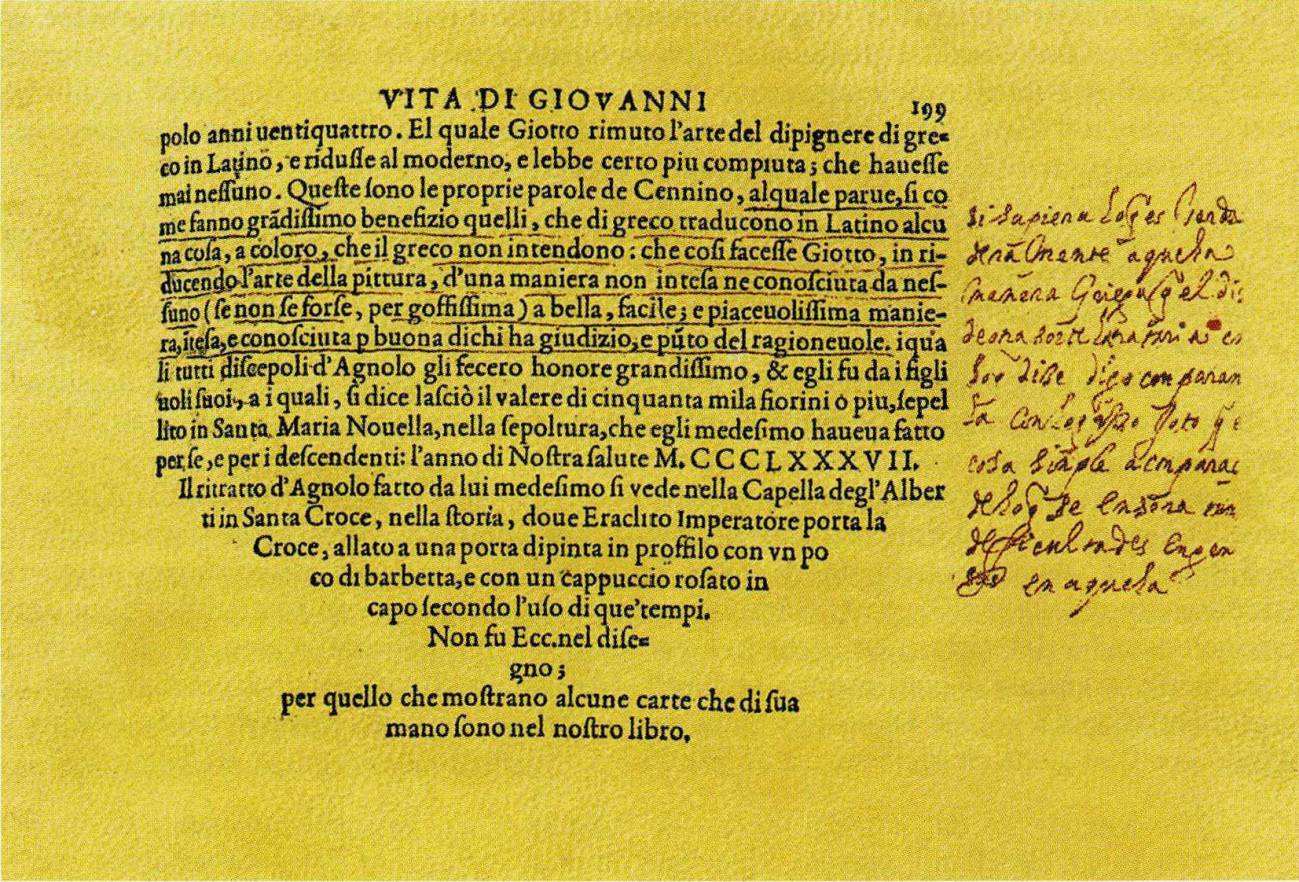 VITA DI GIOVANNI
199
polo anni uentiquattro. El quale Giotto rimuto l'arte del dipignere di gre=
co in Latino, e riduſſe al moderno, e lebbe certo piu compiuta; che haueſſe
mai neſſuno. Queſte ſono le proprie parole de Cennino, alquale parue, ſi co
me fanno grādiſſimo benefizio quelli, che di greco traducono in Latino alcu
na coſa, a coloro, che il greco non intendono: che coſi faceſſe Giotto, in ri-
ducendo l'arte della pittura, d'una maniera non inteſa ne conoſciuta da neſ-
ſuno (ſe non ſe forſe, per goffiſſima) a bella, facile; e piaceuoliſſima manie-
ra, īteſa, e conoſciuta p buona di chi ha giudizio, e pūto del ragioneuole. i qua
li tutti diſcepoli d'Agnolo gli fecero honore grandiſſimo, & egli fu da i figli
uoli ſuoi, a i quali, ſi dice laſciò il valere di cinquanta mila fiorini o piu, ſepel
lito in Santa Maria Nouella, nella ſepoltura, che egli medeſimo haueua fatto
per ſe, e per i deſcendenti: l'anno di Noſtra ſalute M. CCCLXXXVII.
Il ritratto d'Agnolo fatto da lui medeſimo ſi vede nella Capella degl'Alber
ti in Santa Croce, nella ſtoria, doue Eraclito Imperatore porta la
Croce, allato a una porta dipinta in proffilo con vn po
co di barbetta, e con un cappuccio roſato in
capo ſecondo l'uſo di que'tempi.
Non fu Ecc. nel diſe=
gno;
per quello che moſtrano alcune carte che di ſua
mano ſono nel noſtro libro.
si supiera lo q es
aquella
manera
de otra sorte
dise digo comparan
la con lo q
cosa simple a comparac
de lo q se
deficultades engen
en aquella